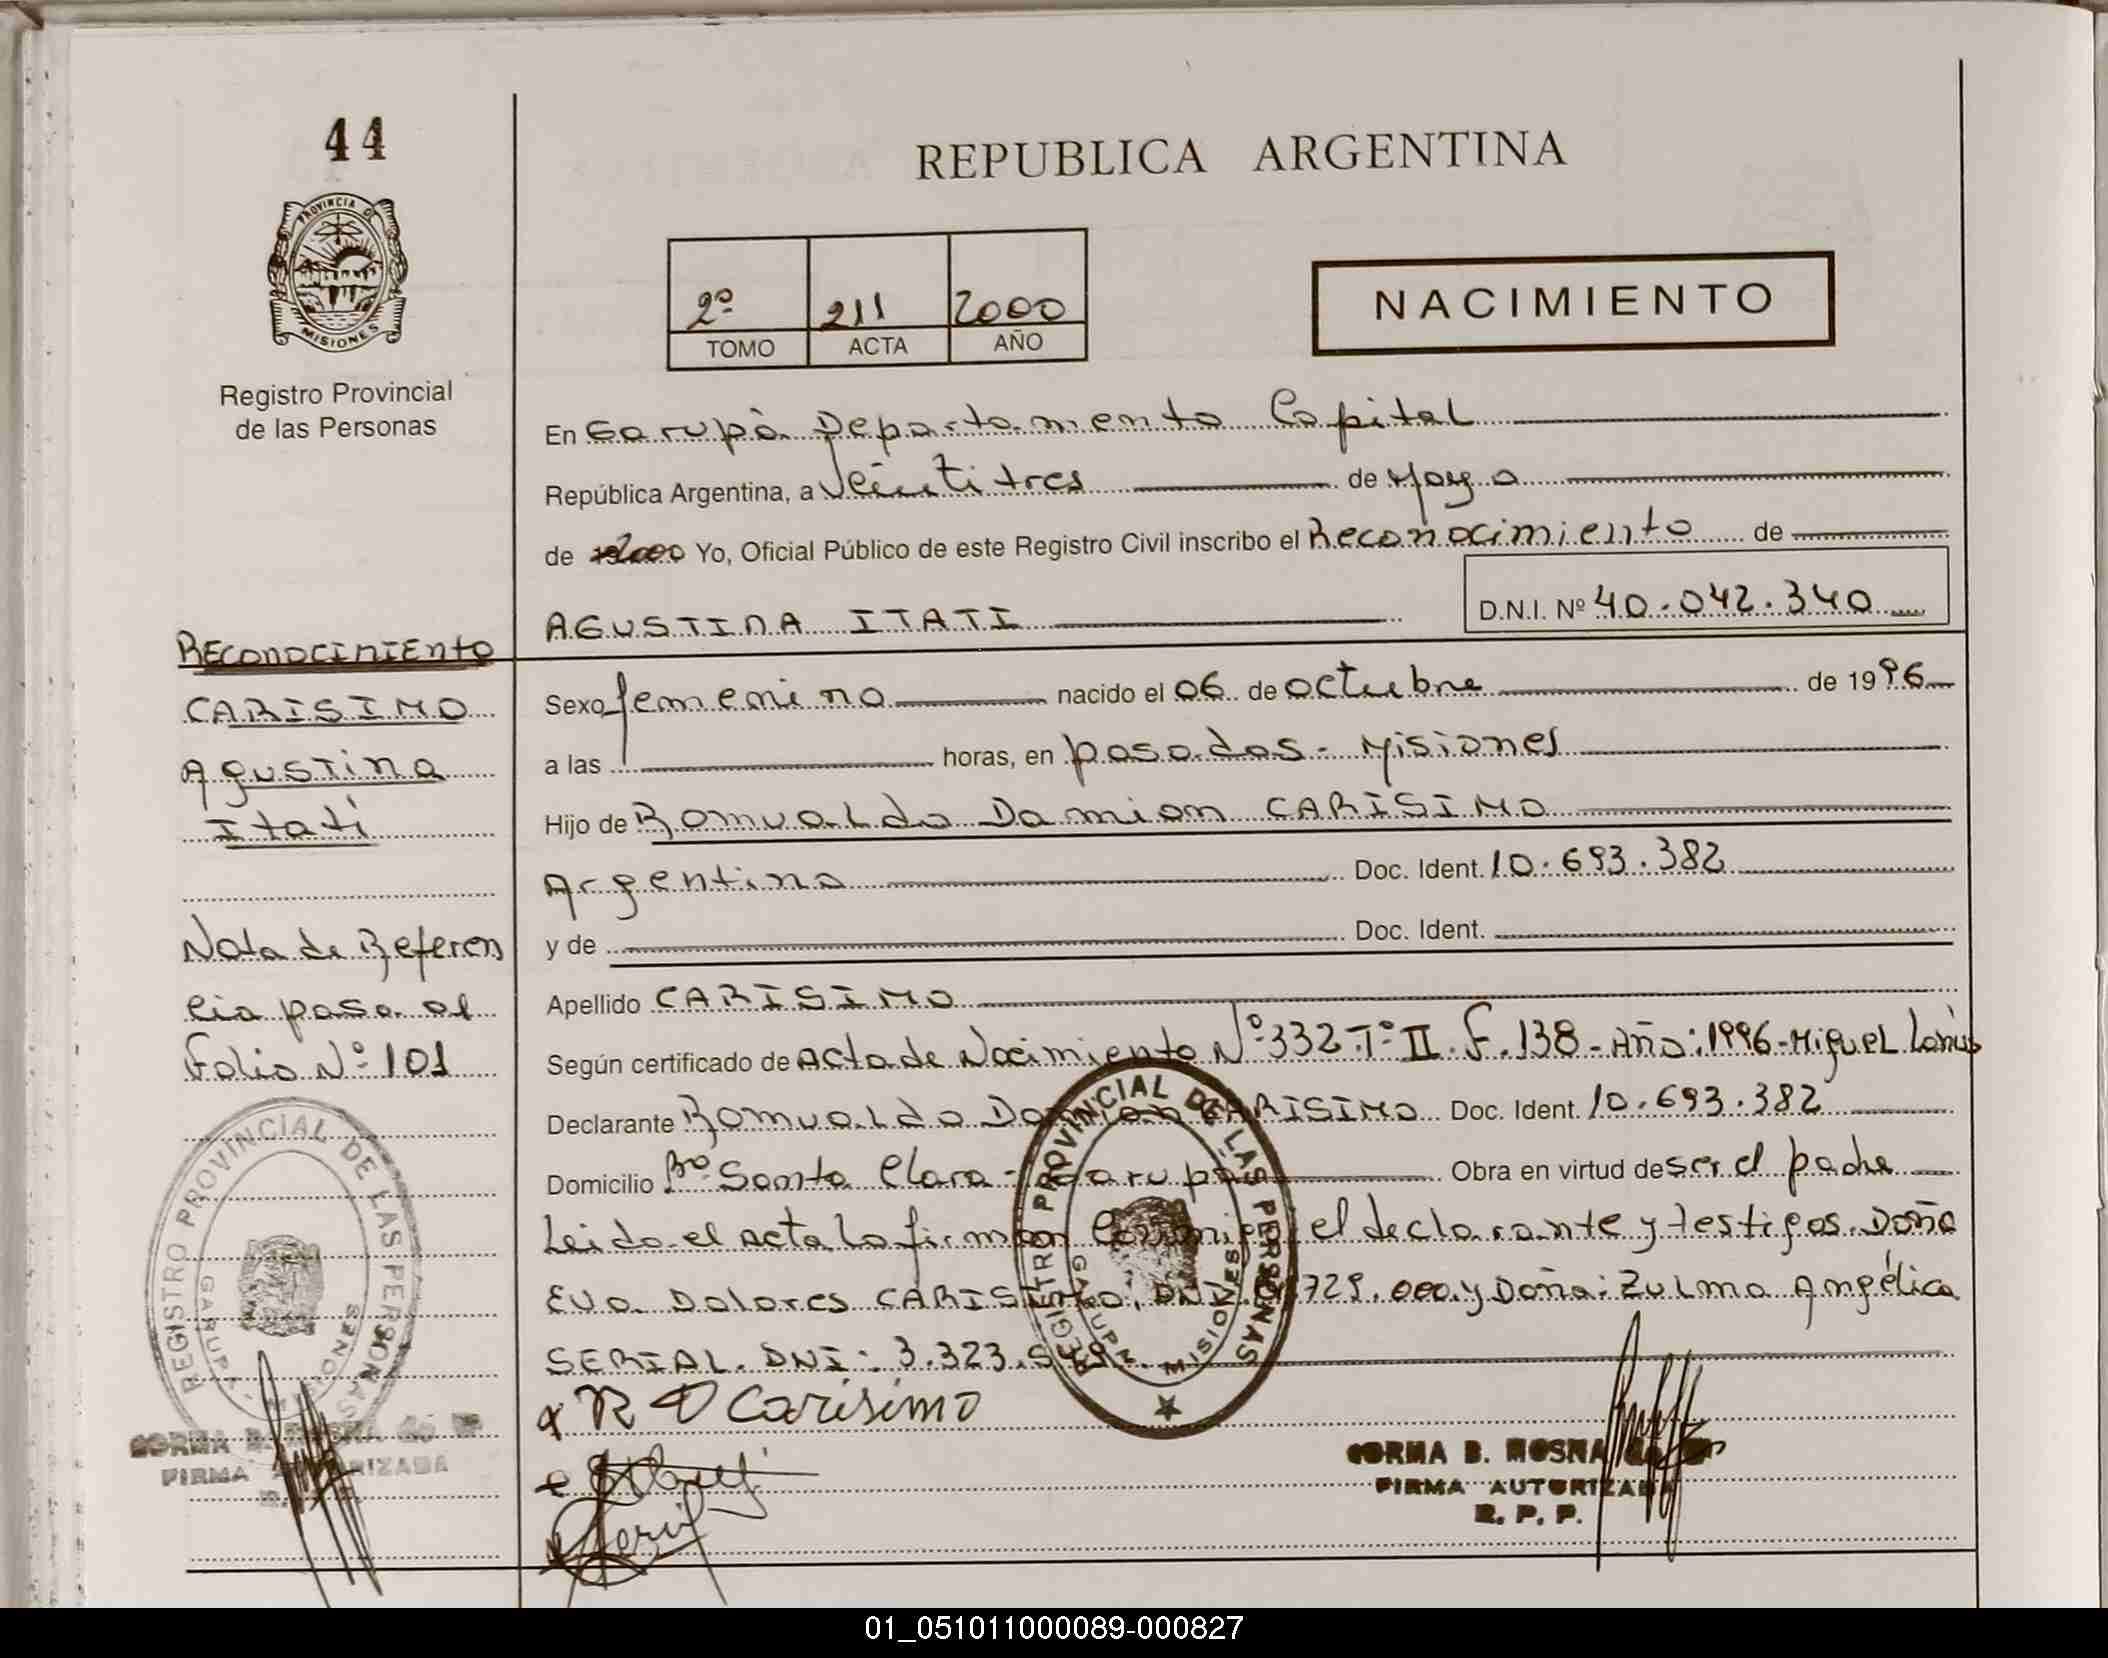 44
REPUBLICA ARGENTINA
PROVINCIA DE
MISIONES
Registro Provincial
de las Personas
2º 211 2000
TOMO ACTA AÑO
NACIMIENTO
En Garupá Departamento Capital
República Argentina, a Veintitres de Mayo
de 2000 Yo, Oficial Público de este Registro Civil inscribo el Reconocimiento de
AGUSTINA ITATI D.N.I. Nº 40.042.340
Sexo femenino nacido el 06 de octubre de 1996
a las horas, en posadas - Misiones
Hijo de Romualdo Damian CARISIMO
Argentino Doc. Ident. 10.693.382
y de Doc. Ident.
Apellido CARISIMO
Según certificado de Acta de Nacimiento Nº 332 Tº II F. 138 - Año: 1996 - Miguel Lanús
Declarante Romualdo Damian CARISIMO Doc. Ident. 10.693.382
Domicilio Bº Santa Clara - Garupá Obra en virtud de ser el padre
Leido el acta la firman conmigo el declarante y testigos Doña
Eva Dolores CARISIMO, DNI 729.000 y Doña: Zulma Angélica
SERIAL. DNI: 3.323.
R D Carisimo
RECONOCIMIENTO
CARISIMO
Agustina
Itatí
Nota de Referen
cia pasa al
Folio Nº 101
REGISTRO PROVINCIAL DE LAS PERSONAS
GARUPA MISIONES
REGISTRO PROVINCIAL DE LAS PERSONAS
GARUPA MISIONES
FIRMA AUTORIZADA
NORMA B. MOSNA
FIRMA AUTORIZADA
R. P. P.
01_051011000089-000827